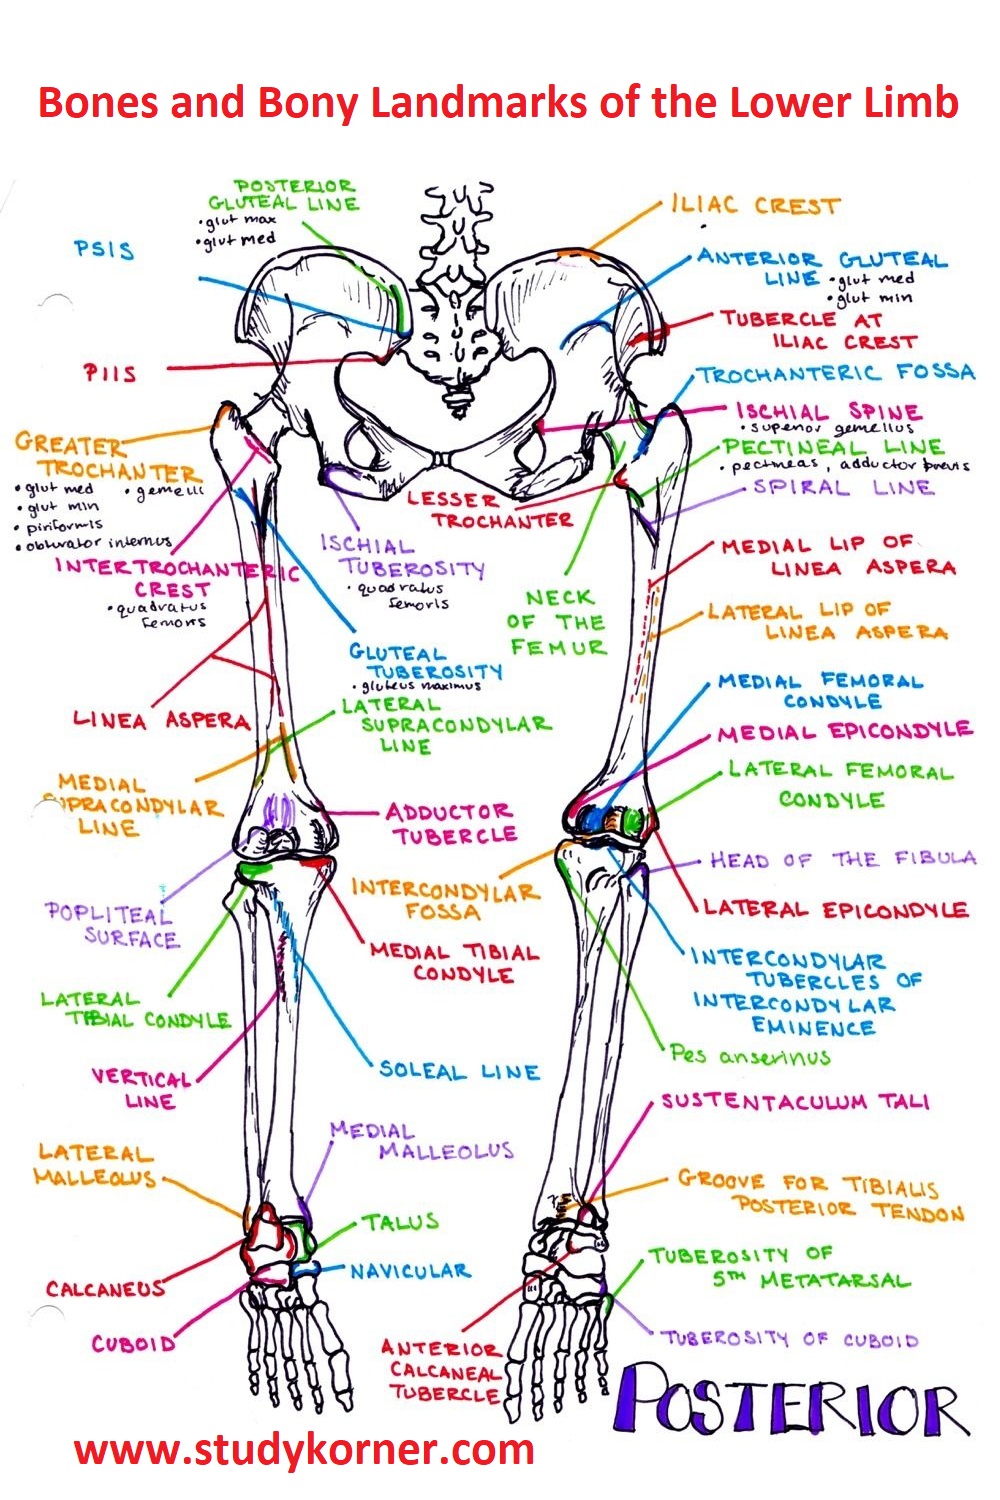 Bones and Bony Landmarks of the Lower Limb
POSTERIOR
GLUTEAL LINE
• glut max
• glut med
PSIS
PIIS
GREATER
TROCHANTER
• glut med • gemelli
• glut min
• piriformis
• obturator internus
INTERTROCHANTERIC
CREST
• quadratus
femoris
LINEA ASPERA
MEDIAL
SUPRACONDYLAR
LINE
POPLITEAL
SURFACE
LATERAL
TIBIAL CONDYLE
VERTICAL
LINE
LATERAL
MALLEOLUS
CALCANEUS
CUBOID
ISCHIAL
TUBEROSITY
• quadratus
femoris
GLUTEAL
TUBEROSITY
• gluteus maximus
LATERAL
SUPRACONDYLAR
LINE
ADDUCTOR
TUBERCLE
INTERCONDYLAR
FOSSA
MEDIAL TIBIAL
CONDYLE
SOLEAL LINE
MEDIAL
MALLEOLUS
TALUS
NAVICULAR
ANTERIOR
CALCANEAL
TUBERCLE
LESSER
TROCHANTER
NECK
OF THE
FEMUR
ILIAC CREST
ANTERIOR GLUTEAL
LINE • glut med
• glut min
TUBERCLE AT
ILIAC CREST
TROCHANTERIC FOSSA
ISCHIAL SPINE
• superior gemellus
PECTINEAL LINE
• pectineas, adductor brevis
SPIRAL LINE
MEDIAL LIP OF
LINEA ASPERA
LATERAL LIP OF
LINEA ASPERA
MEDIAL FEMORAL
CONDYLE
MEDIAL EPICONDYLE
LATERAL FEMORAL
CONDYLE
HEAD OF THE FIBULA
LATERAL EPICONDYLE
INTERCONDYLAR
TUBERCLES OF
INTERCONDYLAR
EMINENCE
Pes anserinus
SUSTENTACULUM TALI
GROOVE FOR TIBIALIS
POSTERIOR TENDON
TUBEROSITY OF
5TH METATARSAL
TUBEROSITY OF CUBOID
POSTERIOR
www.studykorner.com